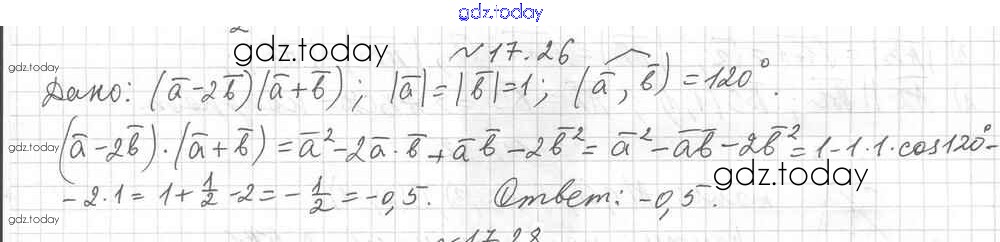 gdz.today
gdz.today
№17.26
gdz.today
Дано: (a̅-2b̅)(a̅+b̅); |a̅|=|b̅|=1; (a̅,b̅)=120°.
gdz.today
(a̅-2b̅)·(a̅+b̅)=a̅²-2a̅·b̅+a̅b̅-2b̅²=a̅²-a̅b̅-2b̅²=1-1·1·cos120°-
gdz.today
-2·1=1+1/2-2=-1/2=-0,5. Ответ: -0,5.
gdz.today
№17.28